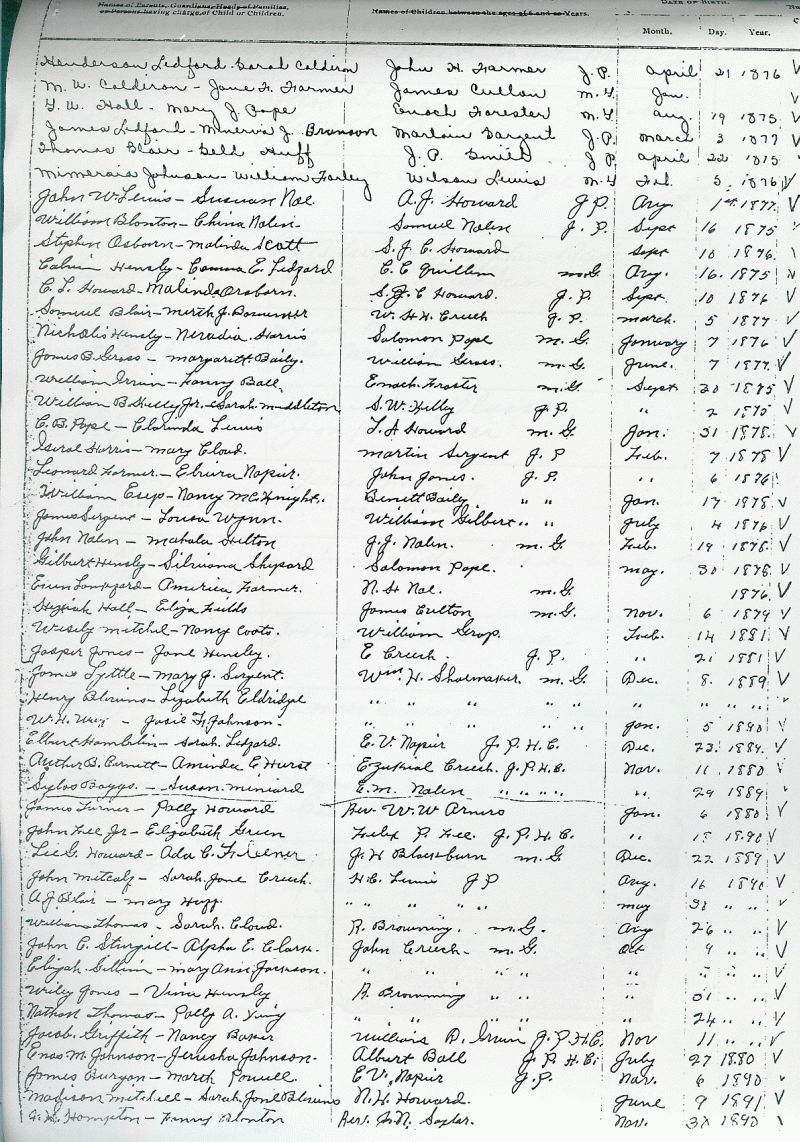 Names of Parents, Guardians, Heads of Families, Names of Children between the ages of 6 and 20 Years. DATE OF BIRTH.
or Persons having charge of Child or Children. Month. Day. Year.
Henderson Ledford Sarah Caldiron John H. Farmer J.P. April 21 1876 V
M. W. Caldiron - Jane F. Farmer James Culton M.G. Jan. V
G. W. Hall - Mary J Pope Enoch Forester M.G. Aug. 19 1875 V
James Ledford - Minerva J. Brunson Martain Sargent J.P. March 3 1877 V
Thomas Blair - Huff J.P. Smith J P April 22 1875 V
Johnson - William Farley Wilson Lewis M.G Feb. 5 1876 V
John W. Lewis - Susan Noe A.J. Howard J P. Aug 1st 1877 V
William Blonton - China Nolen - Samuel Nolen J.P. Sept 16 1875
Stephen Osborn - Malinda Scott S. J. C. Howard Sept 10 1876
Calvin Hensly - E. Ledford C. C M.G. Aug. 16. 1875
C. L. Howard - Malinda Osborn. S. J. C Howard. J.P. Sept. 10 1876 V
Samuel Blair - J. W. H. Creech J.P. March. 5 1877 V
Nicholis Hensly - Nevadia Harris Solomon Pope M.G. January 7 1876 V
James B. Gross - Margarett Baily. William Gross. M.G. June. 7 1877 V
William Irvin - Fanny Ball. Enoch M.G. Sept 30 1875 V
William B Kelly Jr. - Sarah Middleton S. W. Kelly J.P. " 2 1875 V
C. B. Pope - Clarinda Lewis L A Howard M.G. Jan. 31 1878. V
Isaral Harris - Mary Cloud. Martin Sergent J.P Feb. 7 1878 V
Leonard Farmer - Elvira Napier. John Jones. J.P. " 6 1876
William Estep - Nancy McKnight. Benett Baily " " Jan. 17 1878 V
James Sergent - Louisa Wynn. William Gilbert " " July 4 1876 V
John Nolen - Mahala Hilton J.J. Nolen. M.G. Feb. 19 1878. V
Gilbert Hensly - Silviana Shepard Solomon Pope. May. 30 1878 V
America Farmer. N. S. Noe. M.G. 1876 V
Hall - Eliza Fields James Culton M.G. Nov. 6 1879 V
Wesely Mitchel - Nancy Coots. William Feb. 14 1881 V
Jasper Jones - Jane Hensley. E Creech. J.P. " 21 1881 V
James Lyttle - Mary J. Sergent. Wm. H. Shoemaker M.G. Dec. 8. 1889 V
Henry Blevins - Lizabeth Eldridge " " " " " " " " V
W. H. - Josie F. Johnson. " " " " Jan. 5 1890 V
Elbert Hamblin - Sarah Ledford. E. V. Napier J. P. H. C. Dec. 23. 1889. V
Auther B. Cornett - Aminda E Hurst Ezekial Creech. J.P.H.C. Nov. 11 1880 V
Sylas Boggs - Susan Miniard E.M. Nolen " " " " " 29 1889
James Turner - Polly Howard Rev. W. W Jan. 6 1880 V
John Lee Jr - Elizabeth Green Felix P. Lee. J. P. H. C. " 18 1890 V
Lee G. Howard - Ada C. J. H Blackburn M.G Dec. 22 1889 V
John Metcalf - Sarah Jane Creech. H. C. Lewis J P Aug. 16 1890 V
A J Blair - Mary Huff " " " " May 30 " "
William Thomas. Sarah Cloud. R. Browning. M.G. Aug 26 " " V
John C. Sturgill - Alpha E. Clark. John Creech - M.G. Oct 9 " " V
Elijah - Mary Ann Jackson. " " " " " " " " V
Wiley Jones - Hensley R. Browning " " " 31 " " V
Nathan Thomas - Polly A. King " " " " " 24 " " V
Jacob Griffith - Nancy Baker William D. Irvin J.P.H.C. Nov 11 " " V
Enos M. Johnson - Jerusha Johnson. Albert Ball J.P.H.C. July 27 1880 V
James Burgan - Powell. E V. Napier J.P. Nov. 6 1890
Madison Mitchell - Sarah Jane Blevins N. H. Howard. June 9 1891 V
Hampton - Fanny Blonton Rev. Saylor. Nov. 30 1890